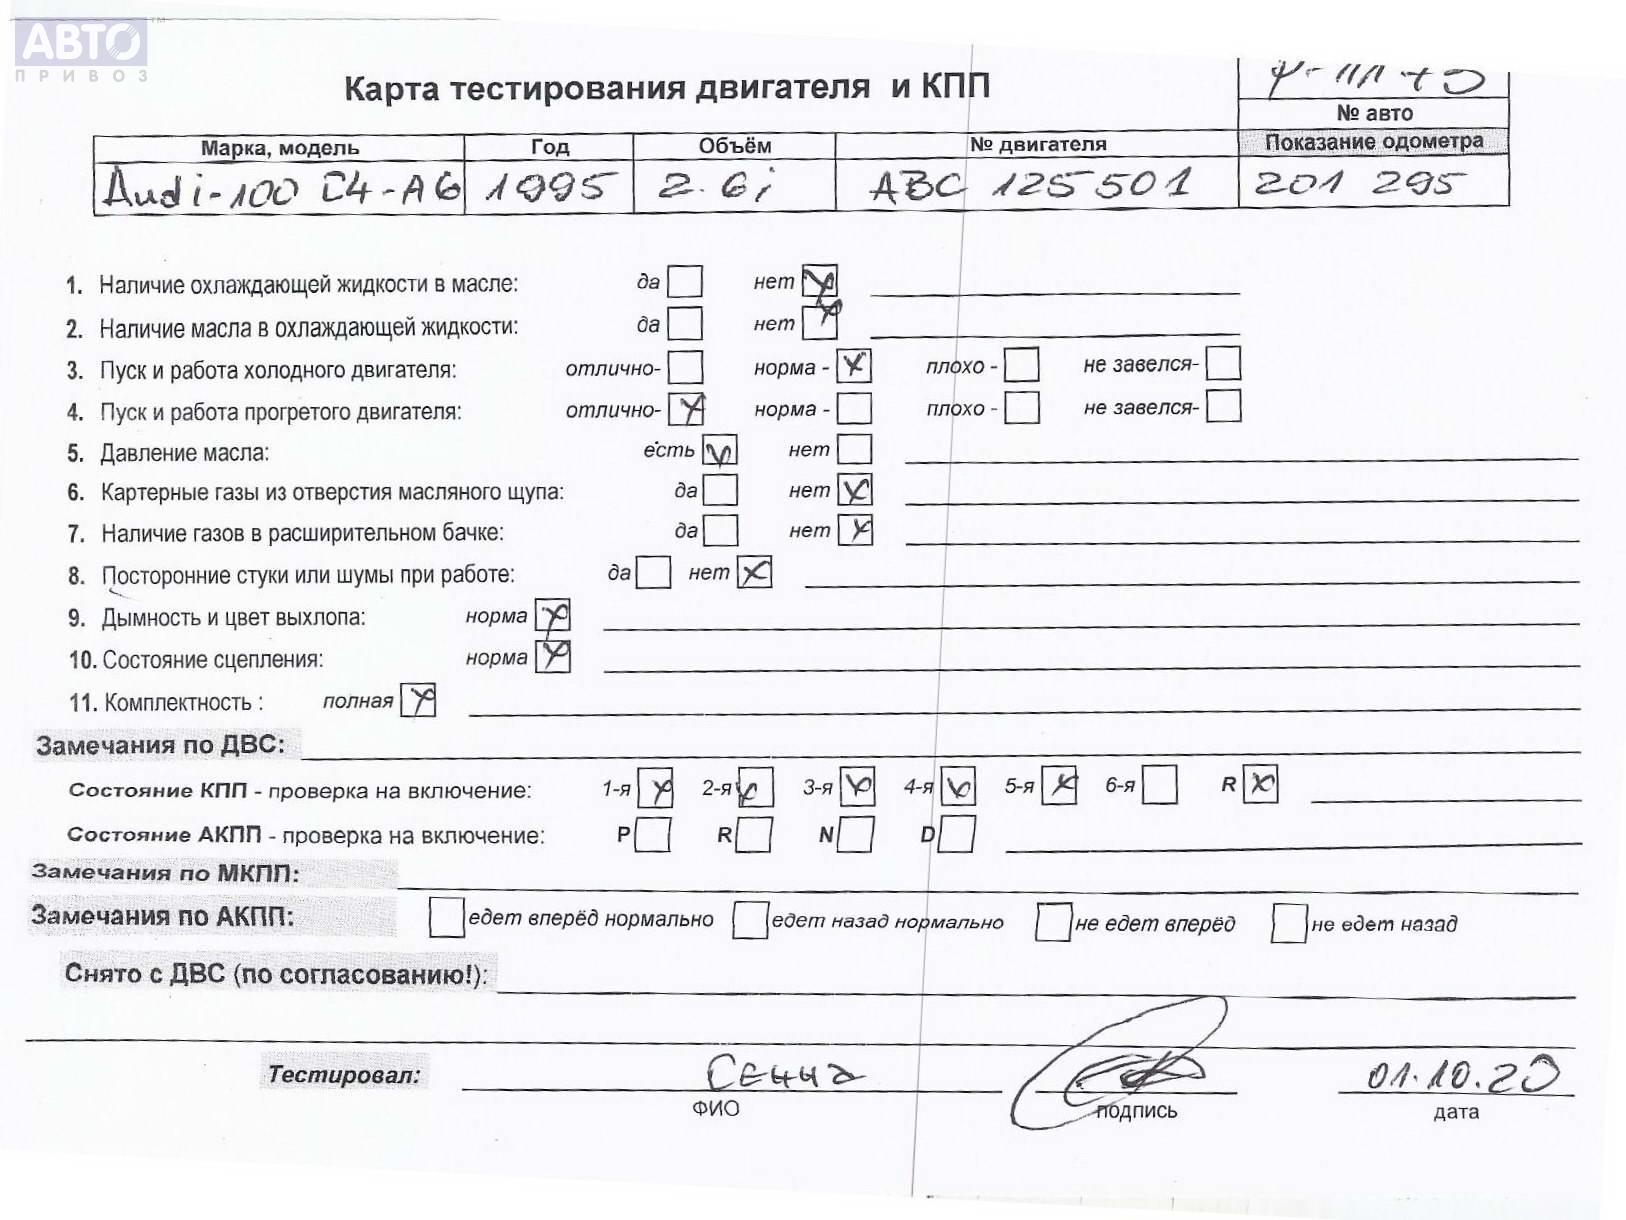 АВТО
ПРИВОЗ
Карта тестирования двигателя и КПП
№ авто
Марка, модель Год Объём № двигателя Показание одометра
Audi-100 C4-A6 1995 2.6i ABC 125501 201 295
1. Наличие охлаждающей жидкости в масле: да нет
2. Наличие масла в охлаждающей жидкости: да нет
3. Пуск и работа холодного двигателя: отлично- норма - плохо - не завелся-
4. Пуск и работа прогретого двигателя: отлично- норма - плохо - не завелся-
5. Давление масла: есть нет
6. Картерные газы из отверстия масляного щупа: да нет
7. Наличие газов в расширительном бачке: да нет
8. Посторонние стуки или шумы при работе: да нет
9. Дымность и цвет выхлопа: норма
10. Состояние сцепления: норма
11. Комплектность : полная
Замечания по ДВС:
Состояние КПП - проверка на включение: 1-я 2-я 3-я 4-я 5-я 6-я R
Состояние АКПП - проверка на включение: P R N D
Замечания по МКПП:
Замечания по АКПП: едет вперёд нормально едет назад нормально не едет вперёд не едет назад
Снято с ДВС (по согласованию!):
Тестировал: Сенна 01.10.20
ФИО подпись дата